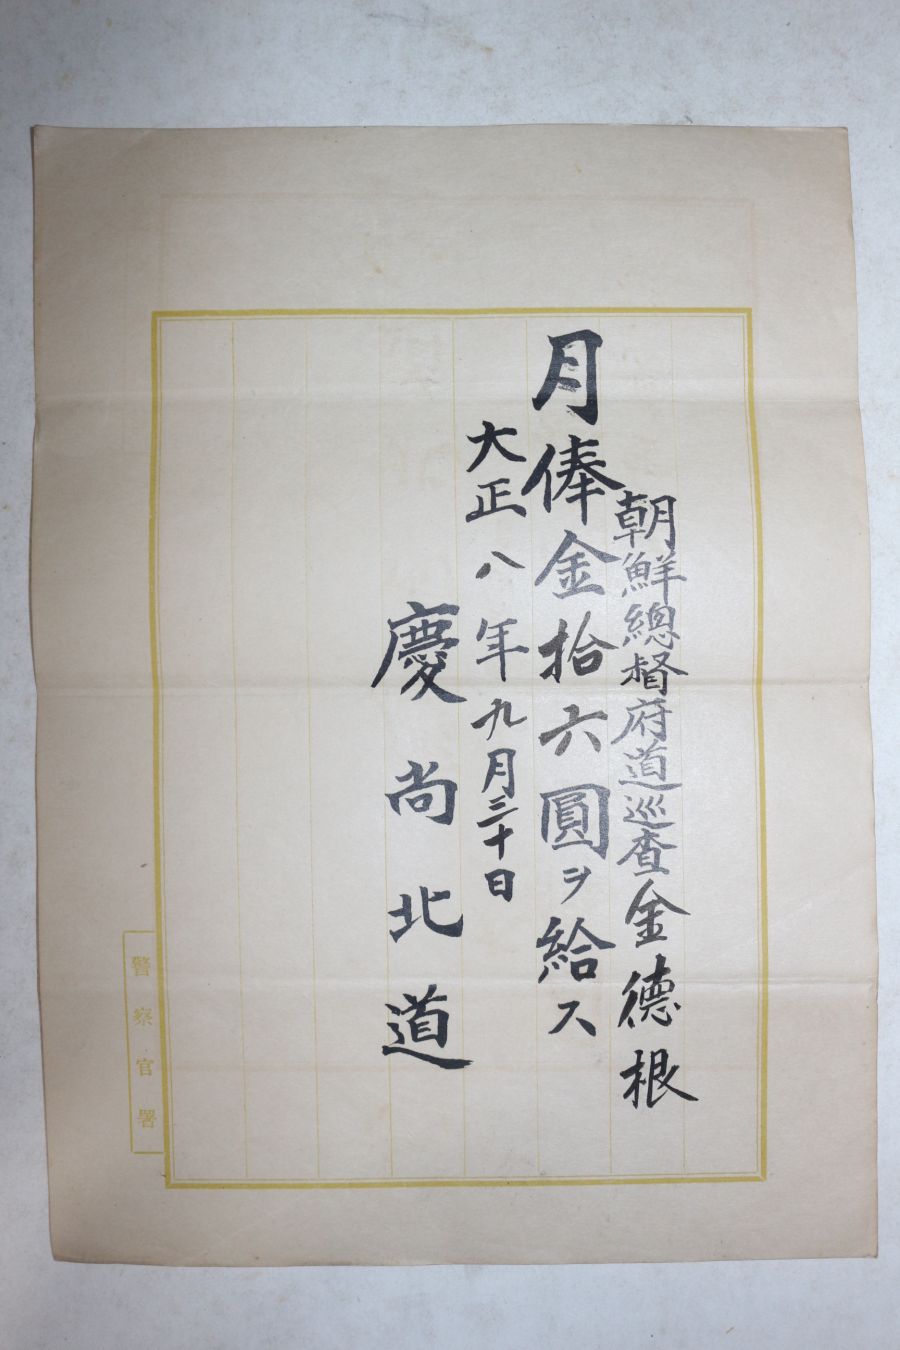 朝鮮總督府道巡査金德根
月俸金拾六圓ヲ給ス
大正八年九月三十日
慶尚北道
警察官署